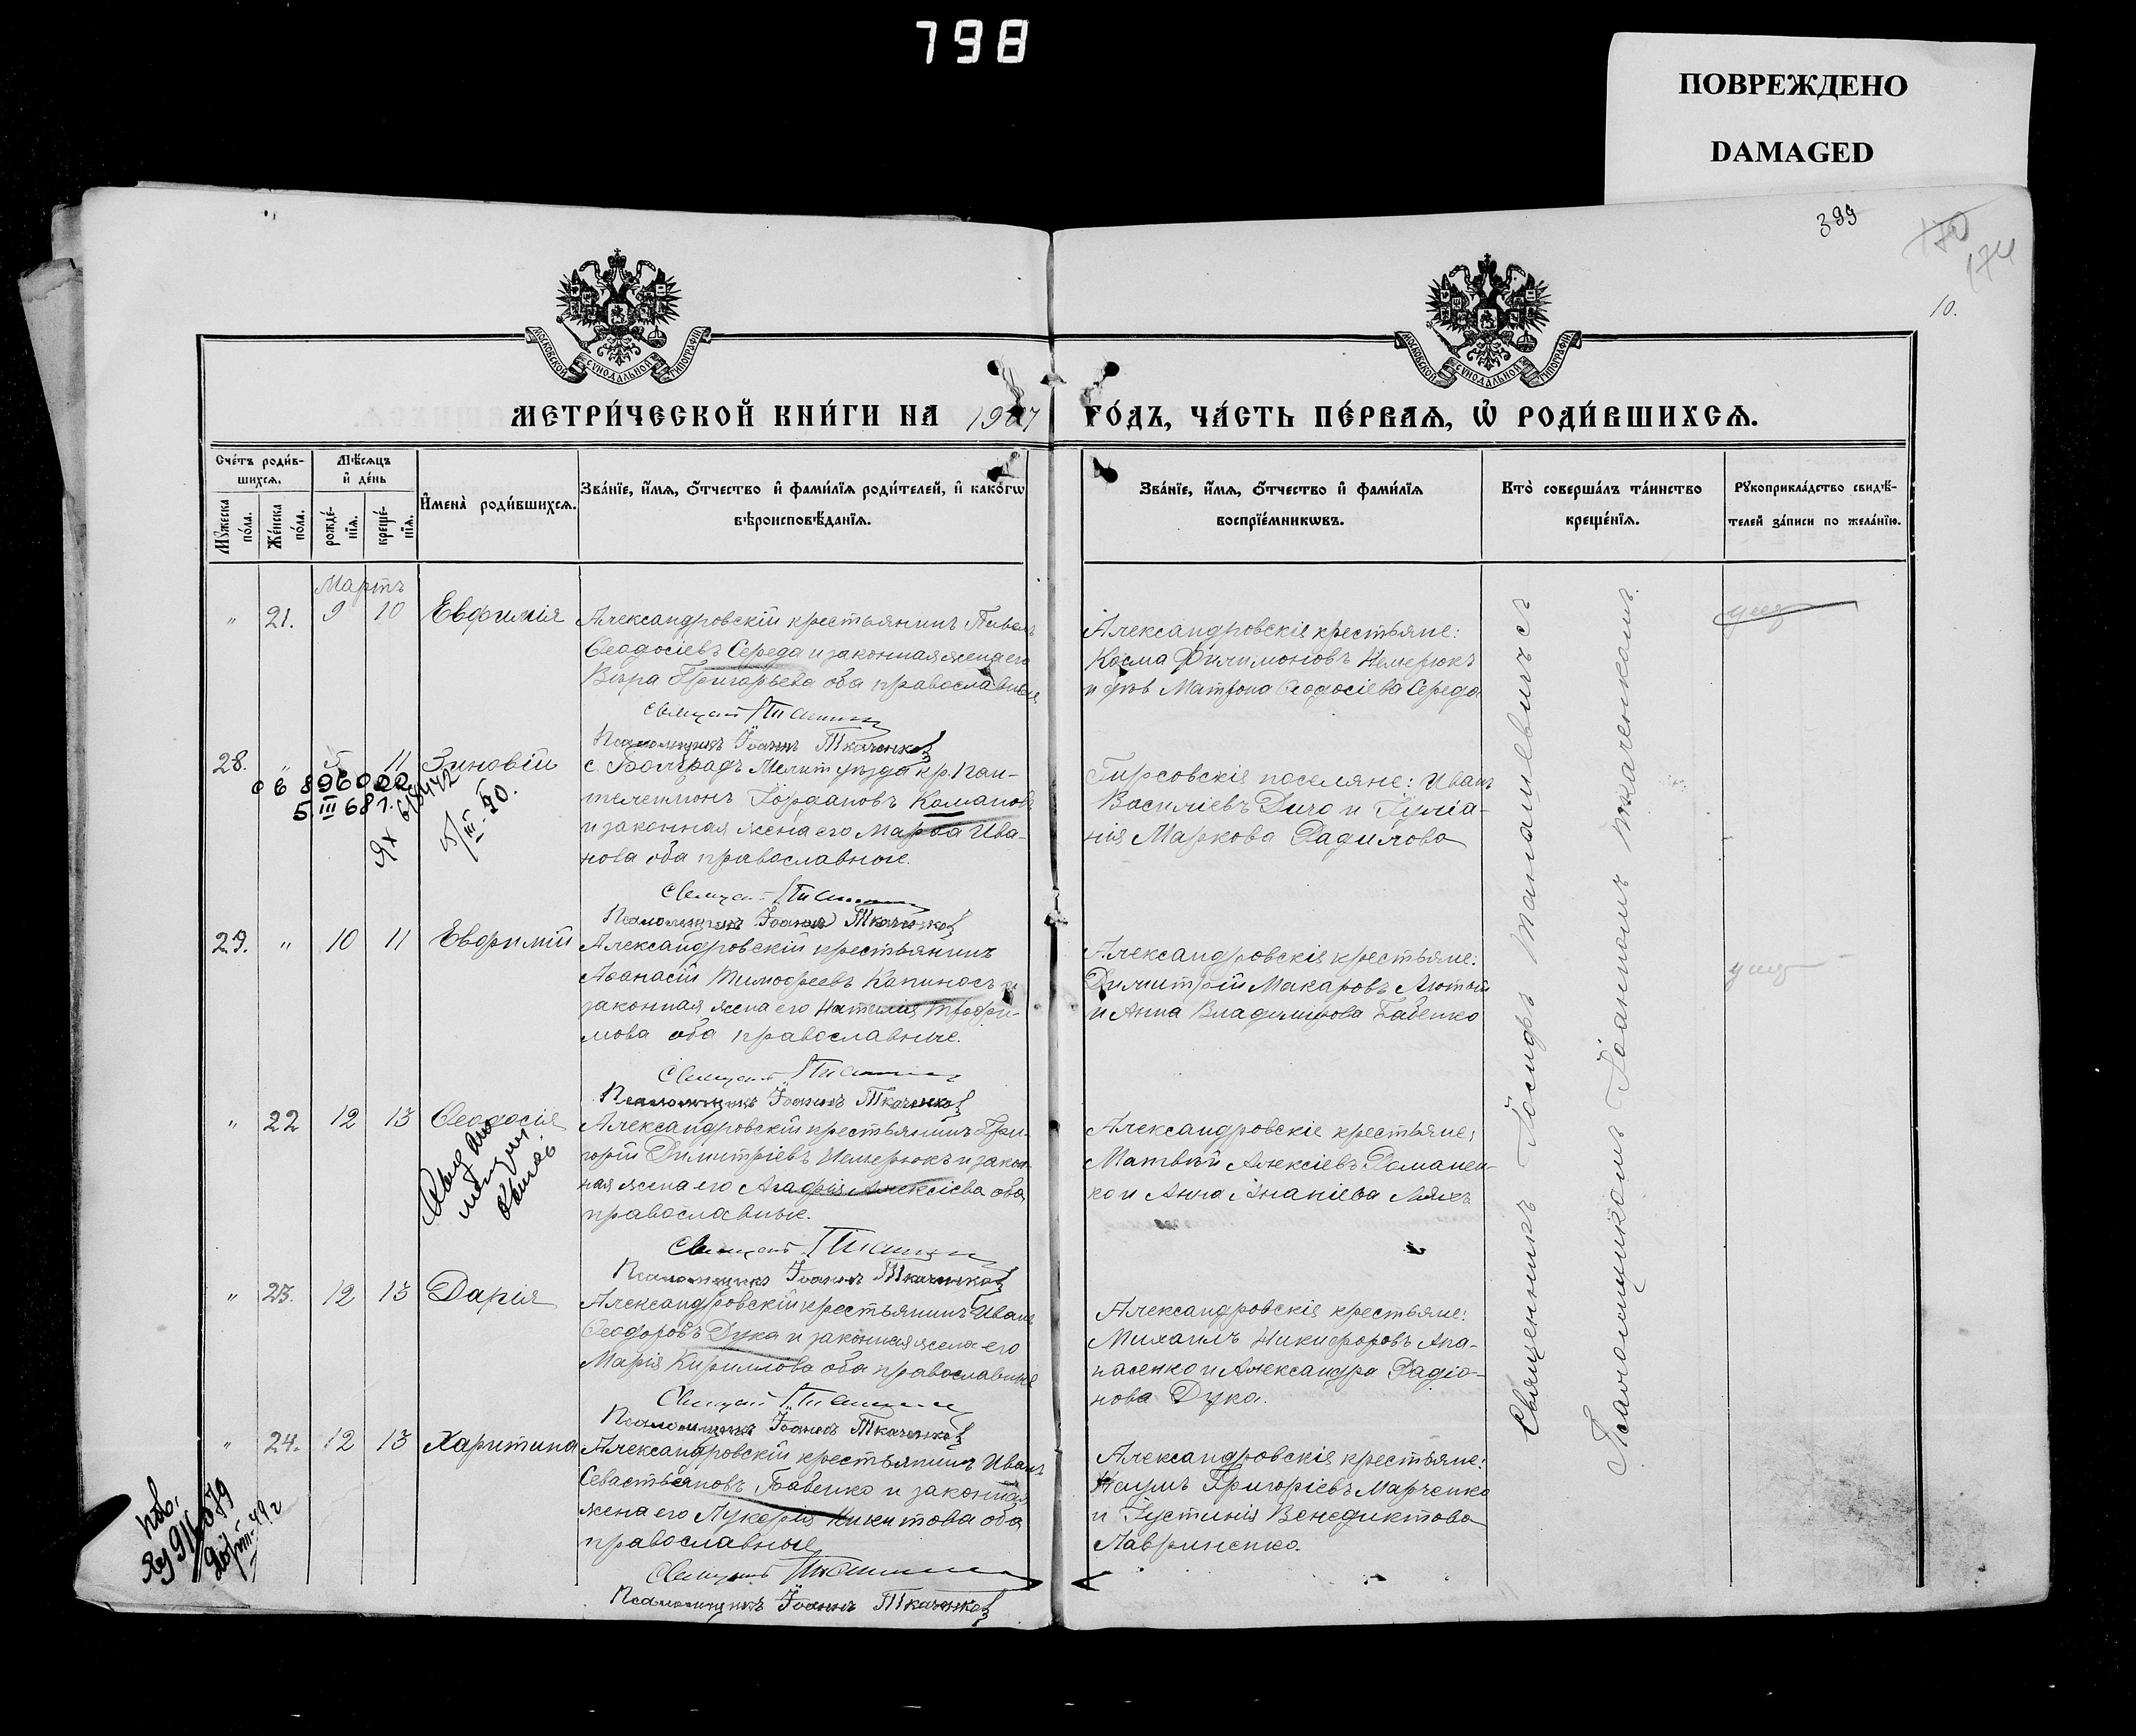 798
ПОВРЕЖДЕНО
DAMAGED
399
170
174
10.
МОСКОВСКОЙ СѴНОДАЛЬНОЙ ТИПОГРАФІИ
МОСКОВСКОЙ СѴНОДАЛЬНОЙ ТИПОГРАФІИ
МЕТРИ́ЧЕСКОЙ КНИ́ГИ НА 1907 ГО́ДЪ, ЧА́СТЬ ПЕ́РВАѦ, Ѡ҆ РОДИ́ВШИХСѦ.
Сче́тъ роди́вшихсѧ.
Мꙋ́жеска по́ла.
Же́нска по́ла.
Мѣ́сѧцъ и҆ де́нь
рожде́нїѧ.
креще́нїѧ.
И҆мена̀ роди́вшихсѧ.
Зва́нїе, и҆́мѧ, ѻ҆́тчество и҆ фами́лїѧ роди́телей, и҆ како́гѡ
вѣроисповѣ́данїѧ.
Зва́нїе, и҆́мѧ, ѻ҆́тчество и҆ фами́лїѧ
воспрїе́мникѡвъ.
Кто̀ соверша́лъ та́инство
креще́нїѧ.
Рꙋкоприкла́дство свидѣ́-
телей за́писи по жела́нїю.
Мартъ
" 21. 9 10 Евфимія
Александровскій крестьянинъ Павелъ
Ѳеодосіевъ Середа и законная жена его
Вѣра Григорьева оба православные
Псаломщикъ Іоаннъ Ткаченко
Александровскіе крестьяне:
Косма Филимоновъ Немерюкъ
и Матрона Ѳеодосіева Середа
28. " 5 11 Зиновій
с. Болградъ Мелит. уѣзда кр. Пан-
телеимонъ Іордановъ Командовъ
и законная жена его Марѳа Ива-
нова оба православные.
Псаломщикъ Іоаннъ Ткаченко
Гирсовскіе поселяне: Иванъ
Василіевъ Дичо и Іуліа-
нія Маркова Радилова
5 III 68 г.
5/III-40.
29. " 10 11 Евфимій
Александровскій крестьянинъ
Аѳанасій Тимофеевъ Капиносъ и
законная жена его Наталія Трофи-
мова оба православные.
Псаломщикъ Іоаннъ Ткаченко
Александровскіе крестьяне:
Димитрій Макаровъ Лютый
и Анна Владимірова Бабенко
" 22 12 13 Ѳеодосія
Александровскій крестьянинъ Гри-
горій Димитріевъ Немерюкъ и закон-
ная жена его Агафія Алексіева оба
православные.
Псаломщикъ Іоаннъ Ткаченко
Александровскіе крестьяне:
Матвѣй Алексіевъ Романен-
ко и Анна Ананіева Ляхъ
" 23. 12 13 Дарія
Александровскій крестьянинъ Иванъ
Ѳеодоровъ Дука и законная жена его
Марія Кириллова оба православные
Псаломщикъ Іоаннъ Ткаченко
Александровскіе крестьяне:
Михаилъ Никифоровъ Апа-
насенко и Александра Радіо-
нова Дука.
" 24. 12 13 Харитина
Александровскій крестьянинъ Иванъ
Севастьяновъ Бабенко и законная
жена его Лукерія Никитова оба
православные
Псаломщикъ Іоаннъ Ткаченко
Александровскіе крестьяне:
Наумъ Григоріевъ Марченко
и Іустинія Венедиктова
Лавриненко.
Священникъ Іосифъ съ
Псаломщикомъ Іоанномъ Ткаченкомъ.